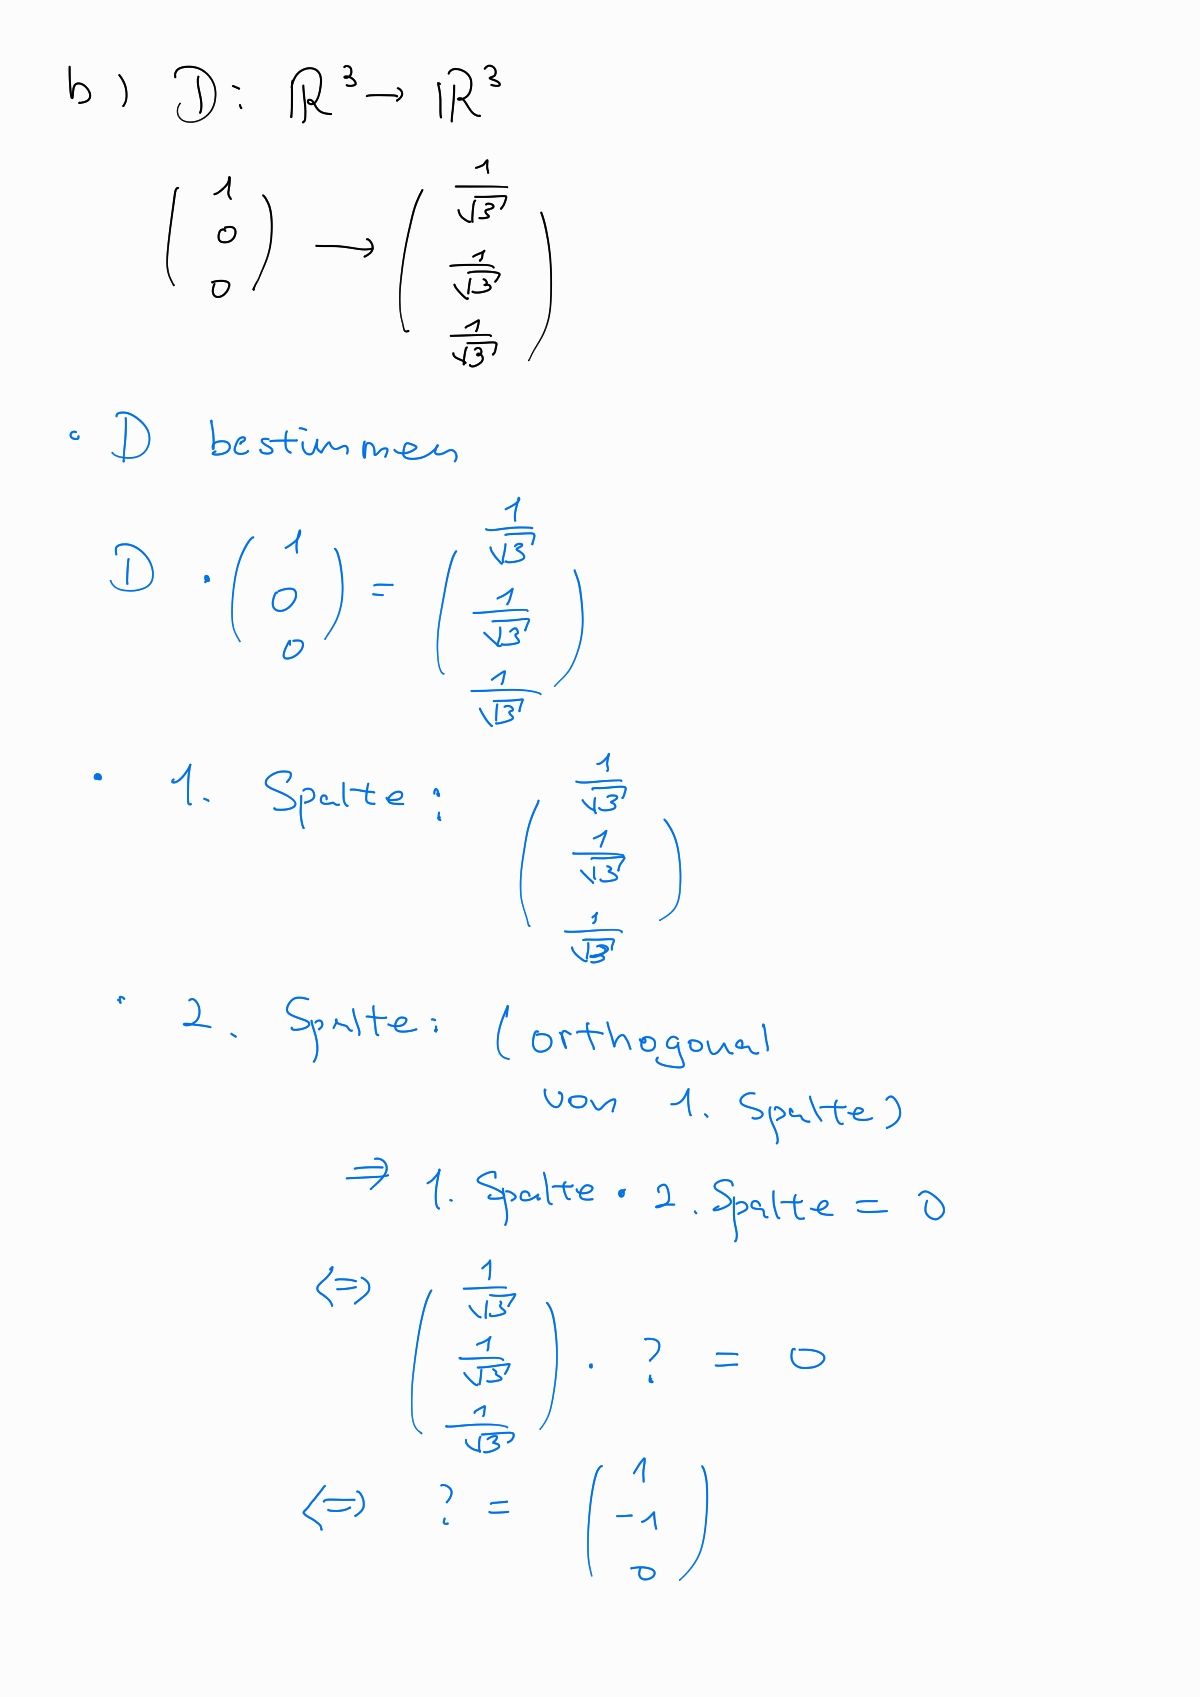 b) D: ℝ³ → ℝ³
(1 0 0) → (1/√3 1/√3 1/√3)
• D bestimmen
D · (1 0 0) = (1/√3 1/√3 1/√3)
• 1. Spalte: (1/√3 1/√3 1/√3)
• 2. Spalte: (orthogonal
von 1. Spalte)
⇒ 1. Spalte · 2. Spalte = 0
⇔ (1/√3 1/√3 1/√3) · ? = 0
⇔ ? = (1 -1 0)